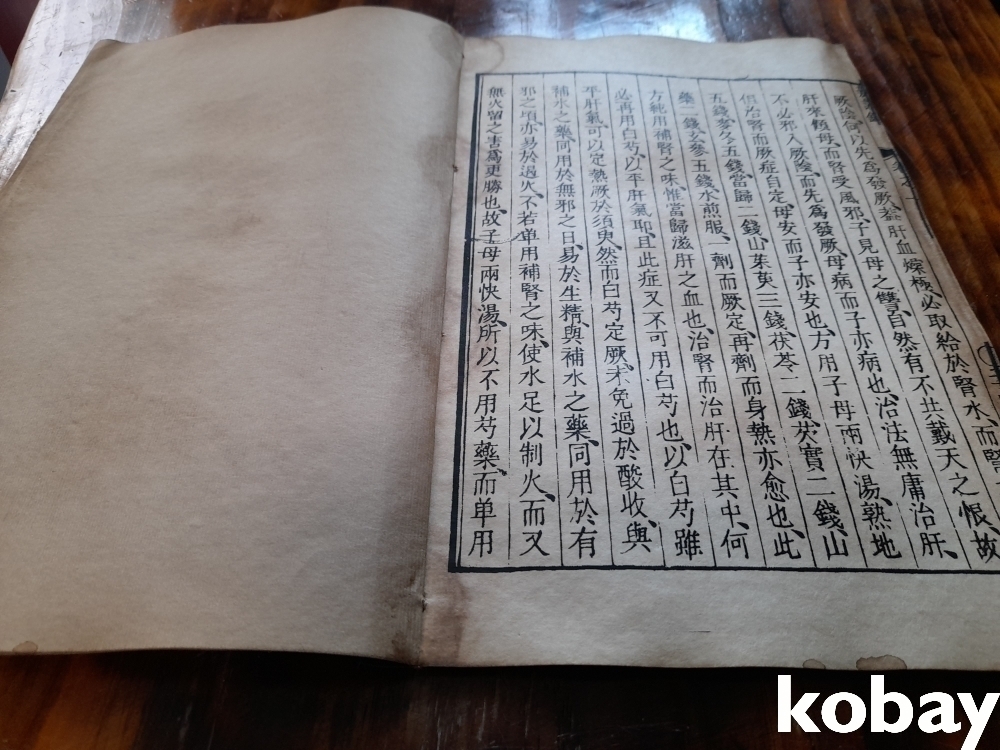 厥陰者以先爲發厥蓋肝血燥極必取給於腎水、而腎
肝來傾母、而腎受風邪、子見母之讐、自然有不共戴天之恨、故
不必邪入厥陰、而先爲發厥、母病而子亦病也、治法無庸治肝、
但治腎而厥症自定、母安而子亦安也、方用子母兩快湯、熟地
五錢麥冬五錢當歸二錢山茱萸三錢茯苓二錢芡實二錢山
藥二錢玄參五錢水煎服、一劑而厥定、再劑而身熱亦愈也、此
方純用補腎之味、惟當歸滋肝之血也、治腎而治肝在其中、何
必再用白芍、以平肝氣耶、且此症又不可用白芍也、以白芍雖
平肝氣可以定熱厥於須臾、然而白芍定厥、未免過於酸收、與
補水之藥、同用於無邪之日、易於生精、與補水之藥、同用於有
邪之頃亦易於過火、不若单用補腎之味、使水足以制火、而又
無火留之害爲更勝也、故子母兩快湯、所以不用芍藥、而单用
kobay